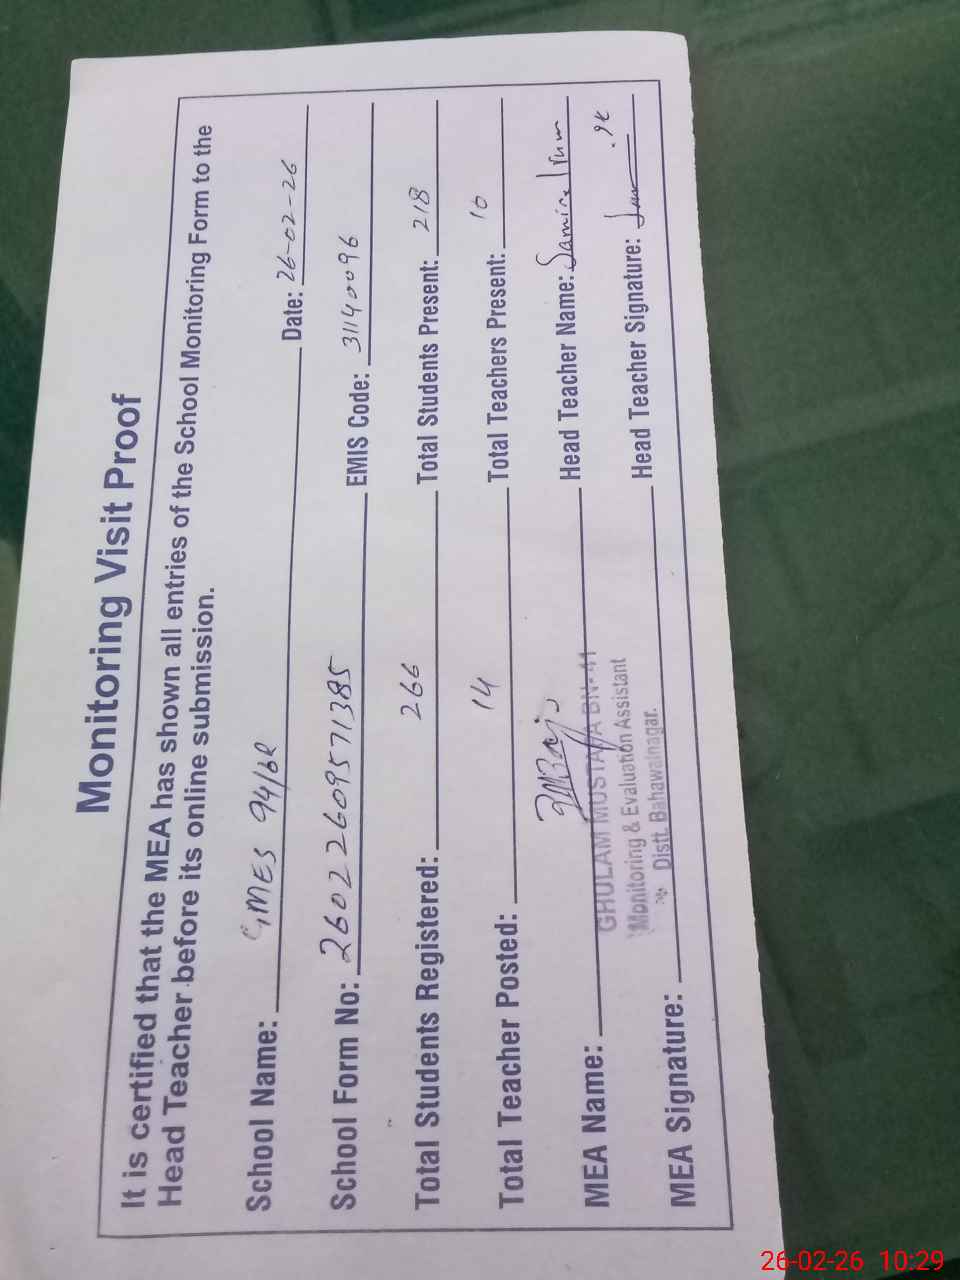 Monitoring Visit Proof
It is certified that the MEA has shown all entries of the School Monitoring Form to the
Head Teacher before its online submission.
School Name: GMES 94/6R Date: 26-02-26
School Form No: 26022609571385 EMIS Code: 31140096
Total Students Registered: 266 Total Students Present: 218
Total Teacher Posted: 14 Total Teachers Present: 10
MEA Name: Head Teacher Name: Samira Irum
GHULAM MUSTAFA BN-41
Monitoring & Evaluation Assistant
Distt. Bahawalnagar.
MEA Signature: Head Teacher Signature:
26-02-26 10:29